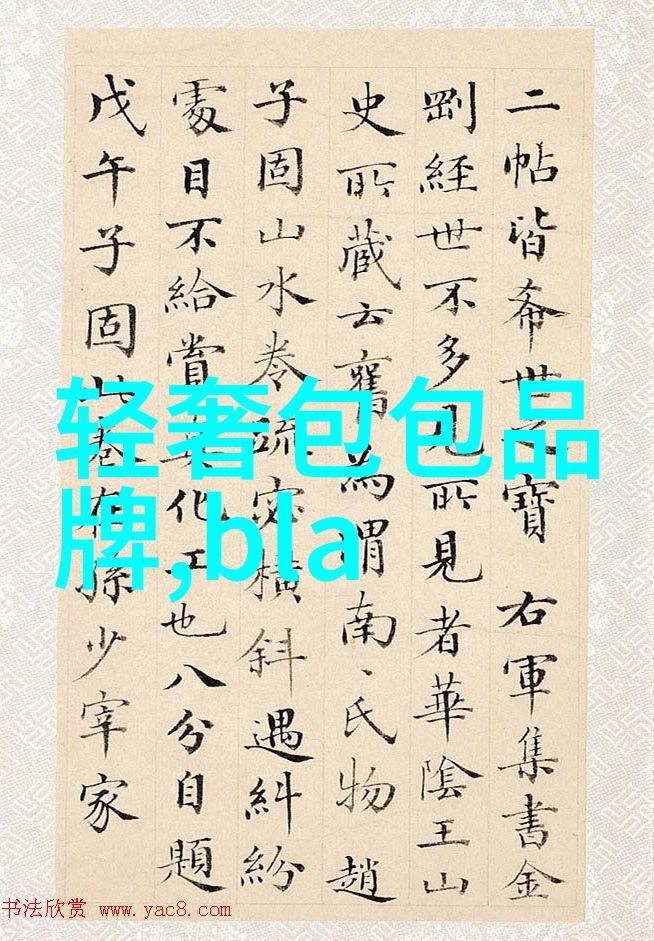 二帖皆希世之寶 右軍集書金
剛經世不多見所見者華陰王山
史所藏云舊為渭南、氏物趙
子固山水卷疏密橫斜遇糾紛
處目不給賞真化工也八分自題
戊午子固此卷在孫少宰家
轻奢包包品
牌,bla
书法欣赏 www.yac8.com